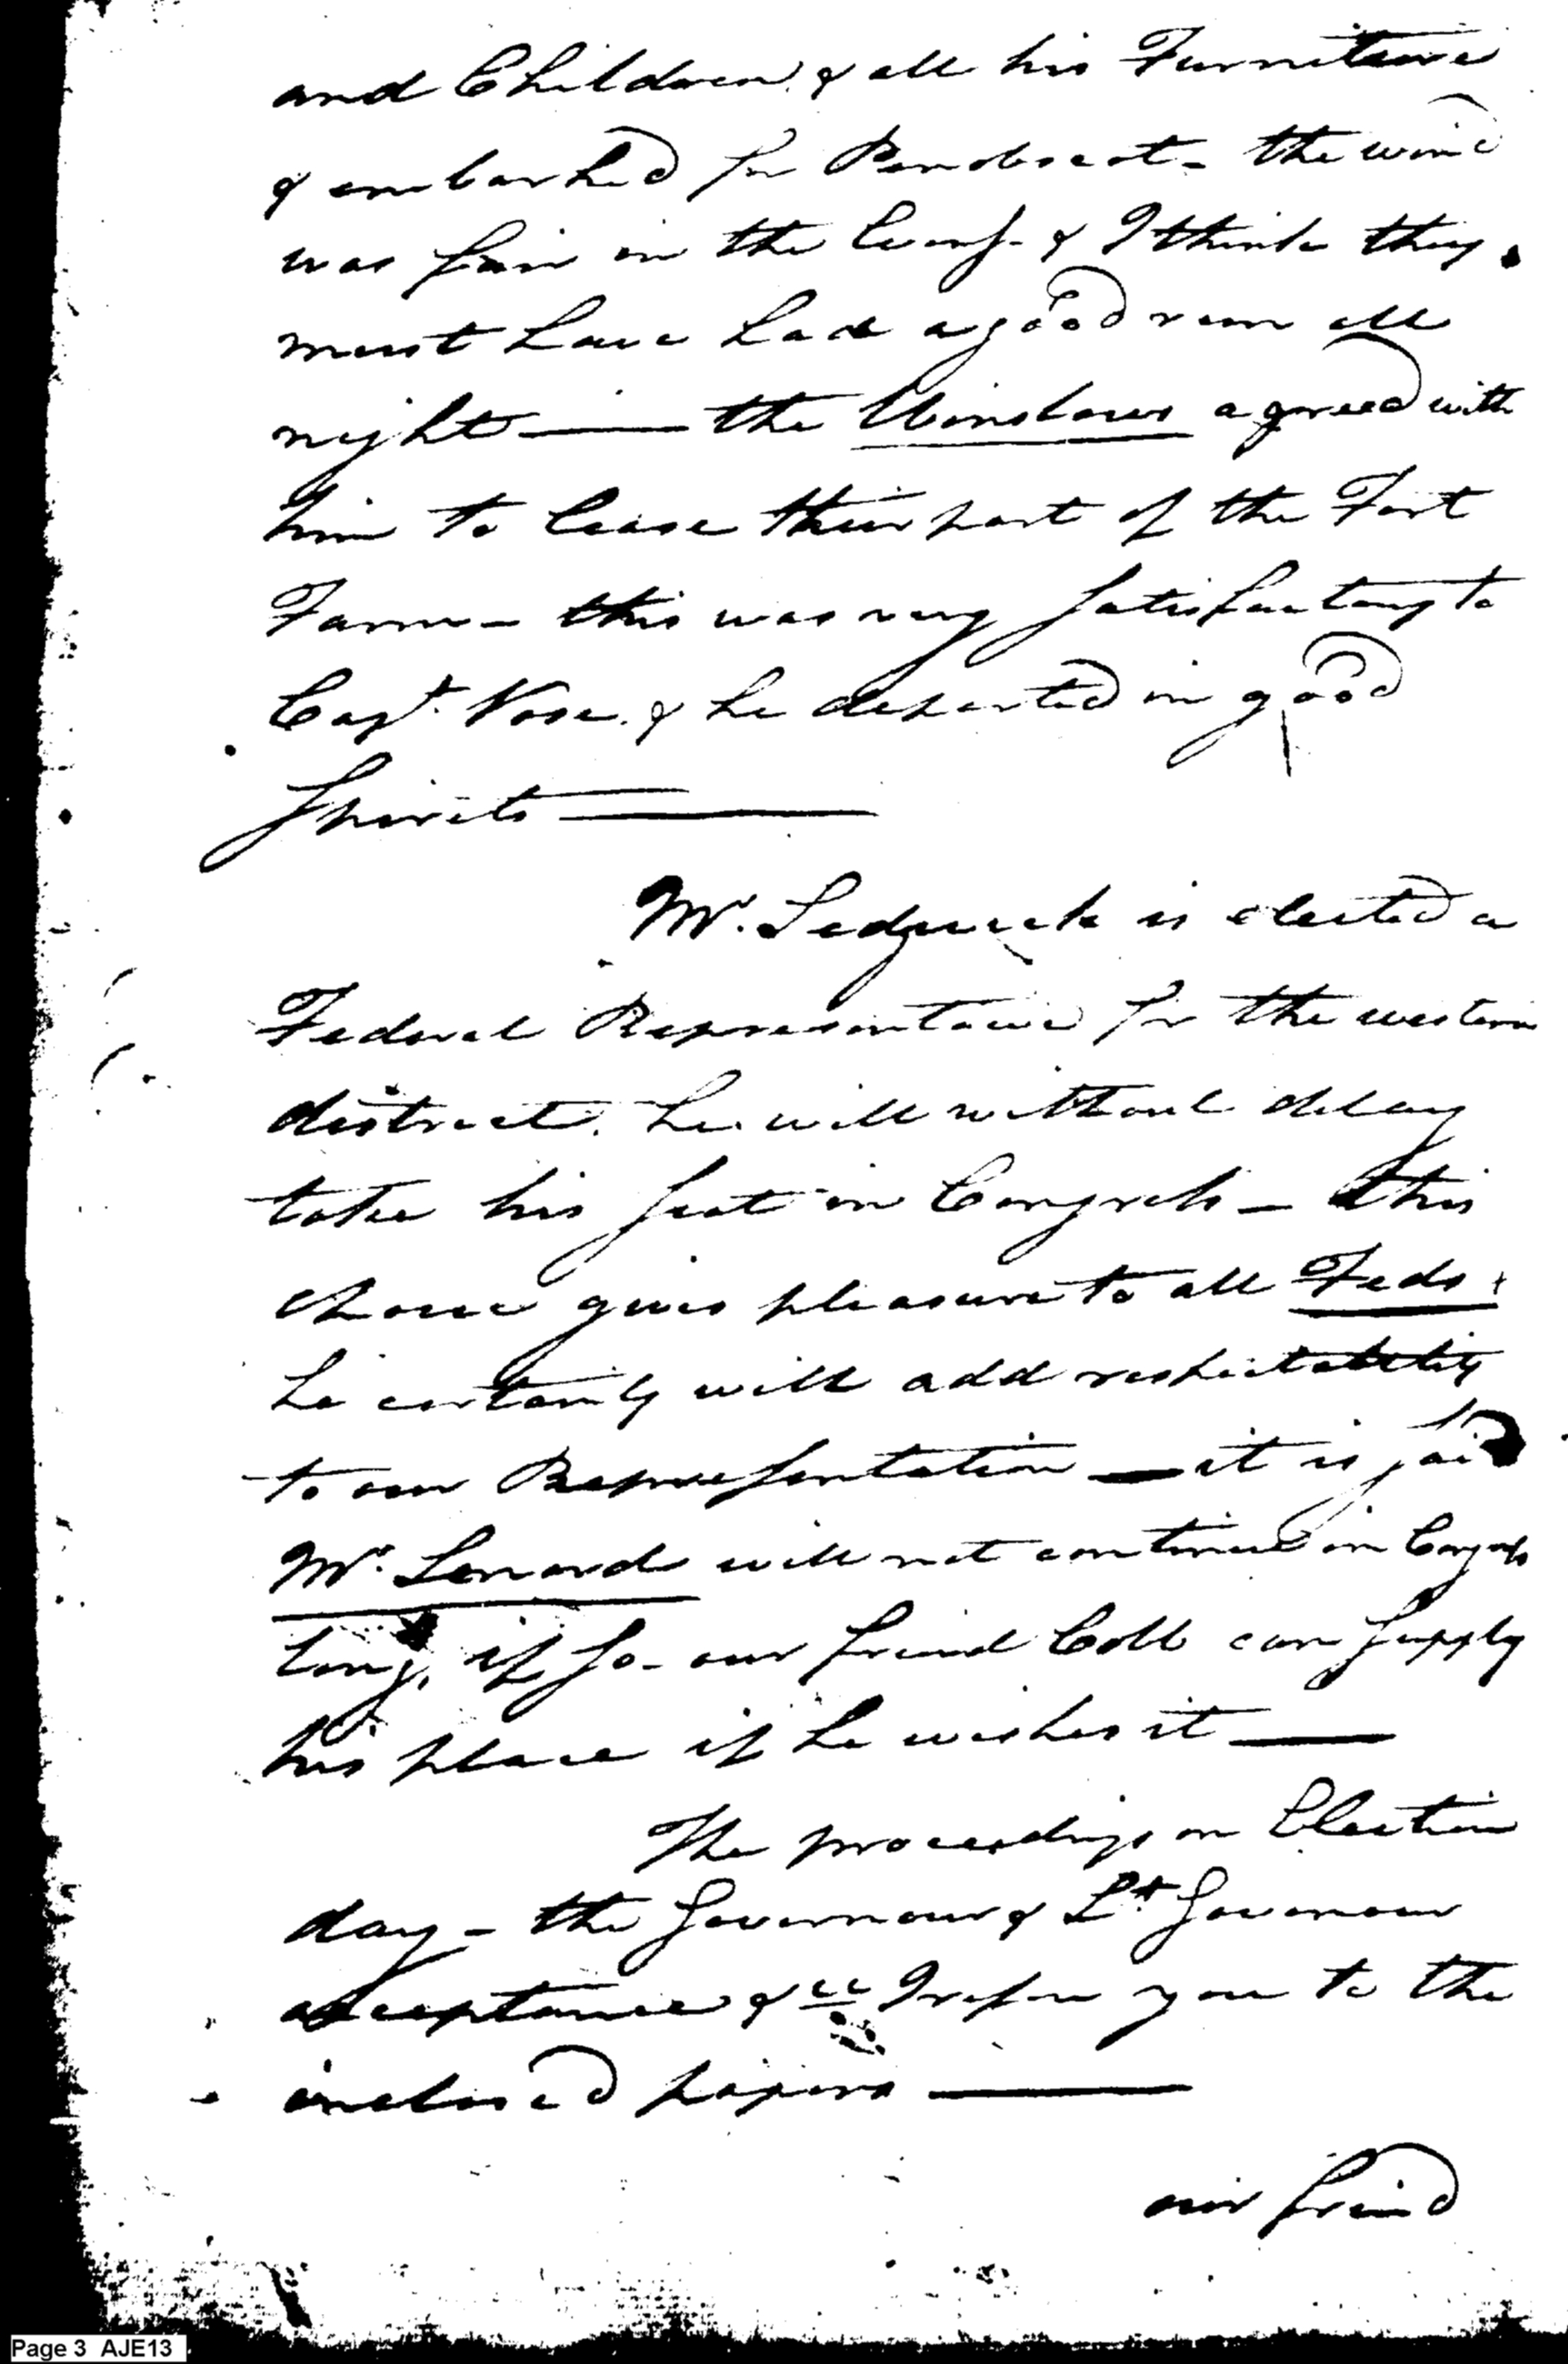 and Children & all his Furniture
& embarked for Penobscot - the wind
was fair in the Eveng. & I think they
must have had a good run all
night — the Winslows agreed with
him to lease their part of the Fort
Farm - this was very satisfactory to
Capt. Vose. & he departed in good
spirits —
Mr. Sedgwick is elected a
Federal Representative for the western
district. he will without delay
take his seat in Congress - this
choice gives pleasure to all Feds.
he certainly will add respectability
to our Representation — it is said
Mr. Lenard will not continue in Congress
long, if so - our friend Cobb can supply
his place if he wishes it —
The proceedings on Election
day - the Governour & Lt Governour
acceptance &cc I refer you to the
inclosed papers —
our friend
Page 3 AJE13